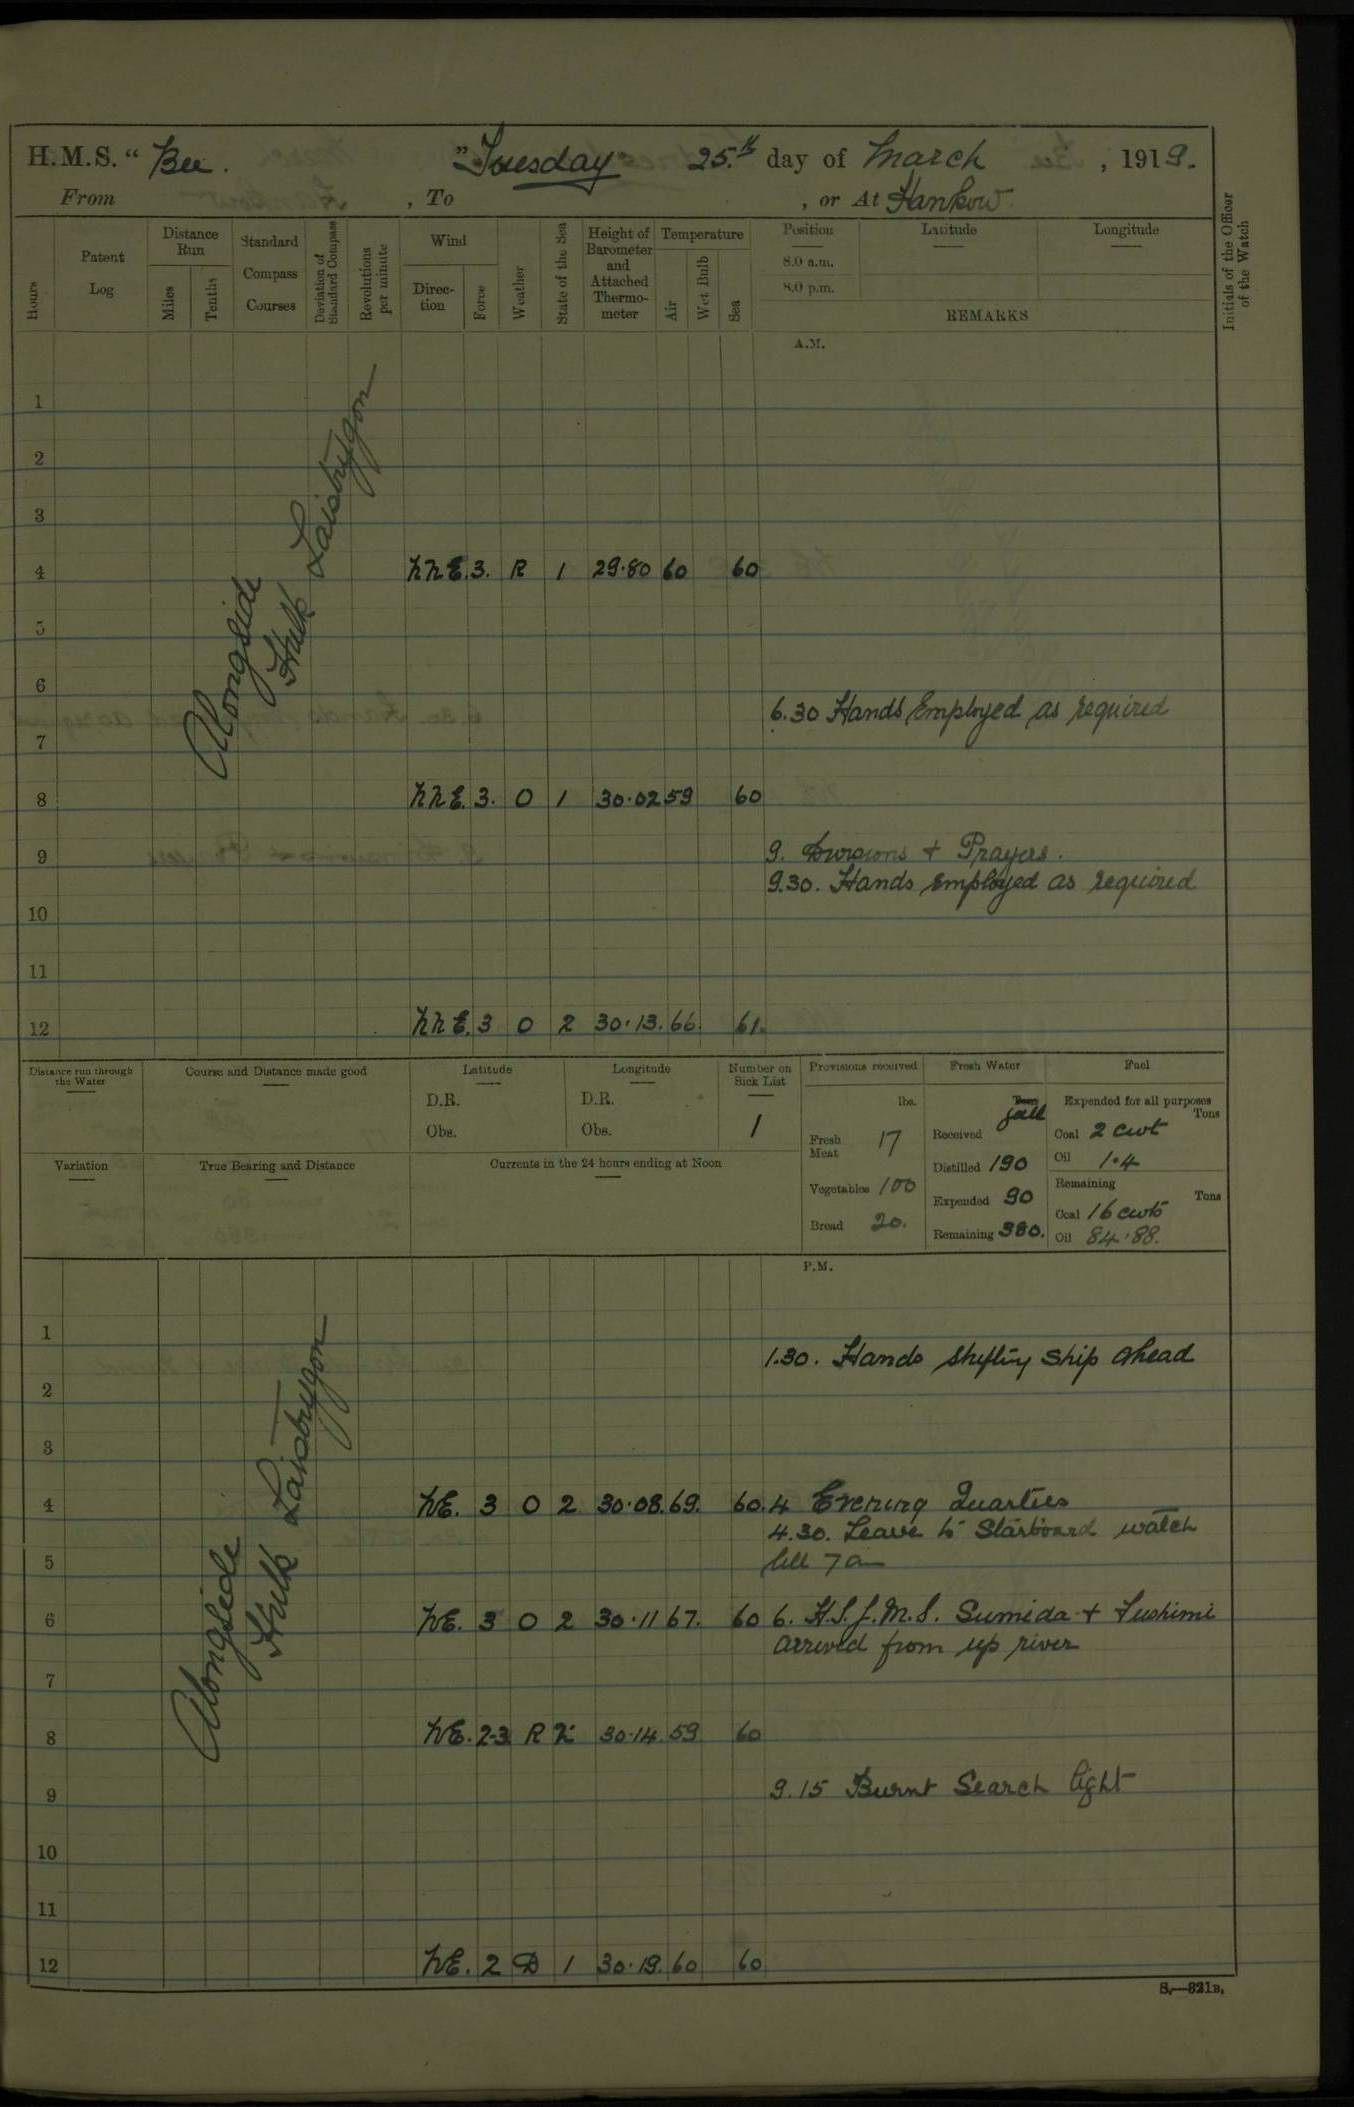 H.M.S. “ Bee. ” Tuesday 25.th day of March , 1919.
From , To , or At Hankow
Hours
Patent Log
Distance Run
Miles
Tenths
Standard Compass Courses
Deviation of Standard Compass
Revolutions per minute
Wind
Direction
Force
Weather
State of the Sea
Height of Barometer and Attached Thermometer
Temperature
Air
Wet Bulb
Sea
Position
8.0 a.m.
8.0 p.m.
Latitude
Longitude
REMARKS
Initials of the Officer of the Watch
A.M.
Alongside
Hulk Laistrygon
1
2
3
4 NNE. 3. R 1 29.80 60 60
5
6
6.30 Hands Employed as required
7
8 NNE. 3. O 1 30.02 59 60
9 9. Divisions + Prayers.
9.30. Hands employed as required
10
11
12 NNE. 3 O 2 30.13. 66. 61.
Distance run through the Water
Course and Distance made good
Latitude
D.R.
Obs.
Longitude
D.R.
Obs.
Number on Sick List
1
Variation
True Bearing and Distance
Currents in the 24 hours ending at Noon
Provisions received
lbs.
Fresh Meat 17
Vegetables 100
Bread 20.
Fresh Water
Tons
Received
Distilled 190
Expended 90
Remaining 380.
Fuel
Expended for all purposes
Tons
Coal 2 cwt
Oil 1.4
Remaining
Tons
Coal 16 cwts
Oil 84.88.
P.M.
Alongside
Hulk Laistrygon
1
1.30. Hands shifting ship ahead
2
3
4 NE. 3 O 2 30.08. 69. 60. 4 Evening Quarters
4.30. Leave to Starboard watch
5 till 7 am
6 NE. 3 O 2 30.11 67. 60 6. H.I.J.M.S. Sumida + Fushimi
arrived from up river
7
8 NE. 2-3 R 2 30.14 59 60
9 9.15 Burnt Search light
10
11
12 NE. 2 D 1 30.19. 60 60
S.—821B.